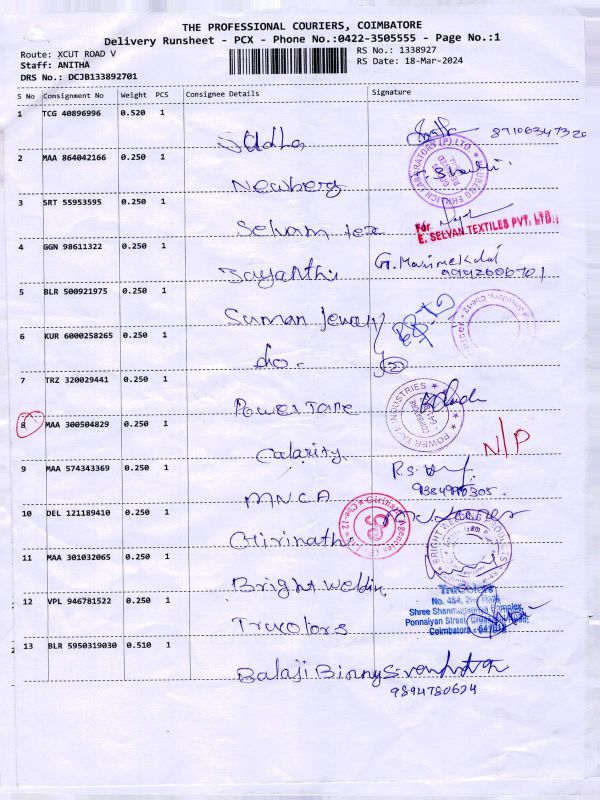 THE PROFESSIONAL COURIERS, COIMBATORE
Delivery Runsheet - PCX - Phone No.:0422-3505555 - Page No.:1
Route: XCUT ROAD V
RS No.: 1338927
Staff: ANITHA
RS Date: 18-Mar-2024
DRS No.: DCJB133892701
S No Consignment No Weight PCS Consignee Details Signature
1 TCG 40896996 0.520 1
2 MAA 864042166 0.250 1
Newberg
3 SRT 55953595 0.250 1
Selvam tex
For
E. SELVAN TEXTILES PVT. LTD.,
4 GGN 98611322 0.250 1
Jayanthi
5 BLR 500921975 0.250 1
Suman
6 KUR 6000258265 0.250 1
do.
7 TRZ 320029441 0.250 1
Power Tape
8 MAA 300504829 0.250 1
Calarity
N/P
9 MAA 574343369 0.250 1
M.N.C.A
10 DEL 121189410 0.250 1
Girinath
11 MAA 301032065 0.250 1
Bright weldin
12 VPL 946781522 0.250 1
Trucolors
TruColors
No. 454,
Ponnaiyan Street,
Coimbatore
13 BLR 5950319030 0.510 1
Balaji Binny
9894780674